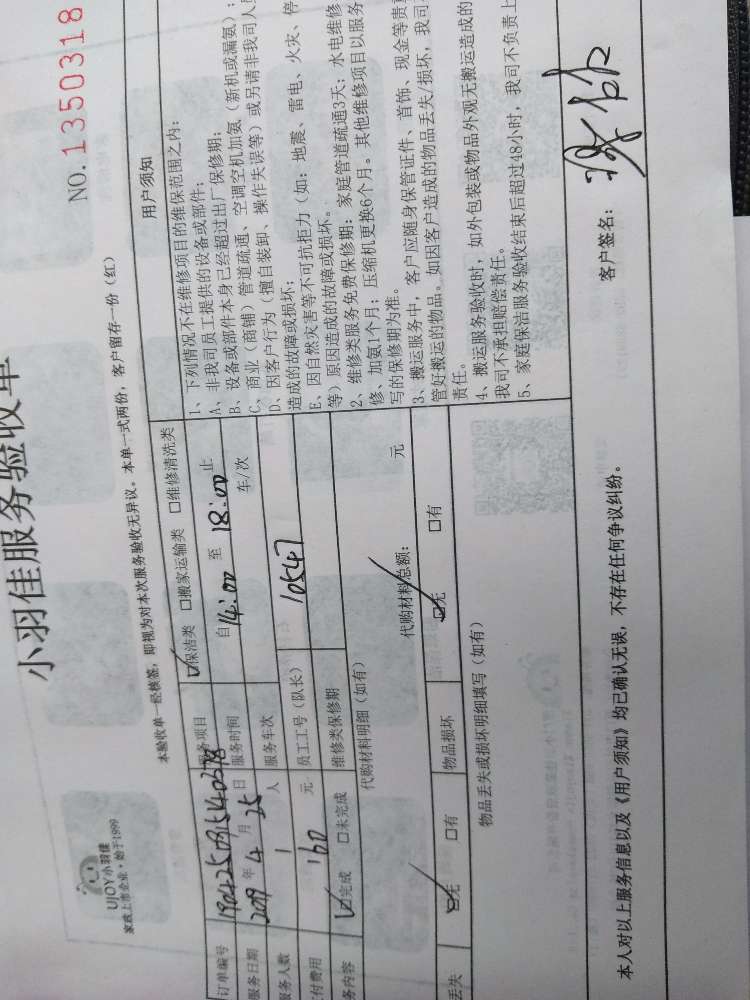 小羽佳服务验收单
NO.1350318
UJOY小羽佳
家政上市企业·始于1999
本验收单一经核签，即视为对本次服务验收无异议。本单一式两份，客户留存一份（红）
订单编号
服务项目 ☑保洁类 □搬家运输类 □维修清洗类
服务日期 2019年4月25日 服务时间 自14:00至18:00止
服务人数 1人 服务车次 车/次
付费用 160元 员工工号（队长） 10547
务内容 ☑完成 □未完成 维修类保修期
代购材料明细（如有）
代购材料总额： 元
丢失 ☑无 □有 物品损坏 ☑无 □有
物品丢失或损坏明细填写（如有）
用户须知
1、下列情况不在维修项目的维保范围之内：
A、非我司员工提供的设备或部件；
设备或部件本身已经超过出厂保修期；
B、商业（商铺）管道疏通、空调空机加氨（新机或漏氨）；
C、因客户行为（擅自装卸、操作失误等）或另请非我司人
D、造成的故障或损坏；
E、因自然灾害等不可抗拒力（如：地震、雷电、火灾、停
等）原因造成的故障或损坏。
2、维修类服务免费保修期：家庭管道疏通3天；水电维修
修、加氨1个月；压缩机更换6个月。其他维修项目以服务
写的保修期为准。
3、搬运服务中，客户应随身保管证件、首饰、现金等贵重
管好搬运的物品。如因客户造成的物品丢失/损坏，我司
责任。
4、搬运服务验收时，如外包装或物品外观无搬运造成的
我司不承担赔偿责任。
5、家庭保洁服务验收结束后超过48小时，我司不负责上
本人对以上服务信息以及《用户须知》均已确认无误，不存在任何争议纠纷。
客户签名：